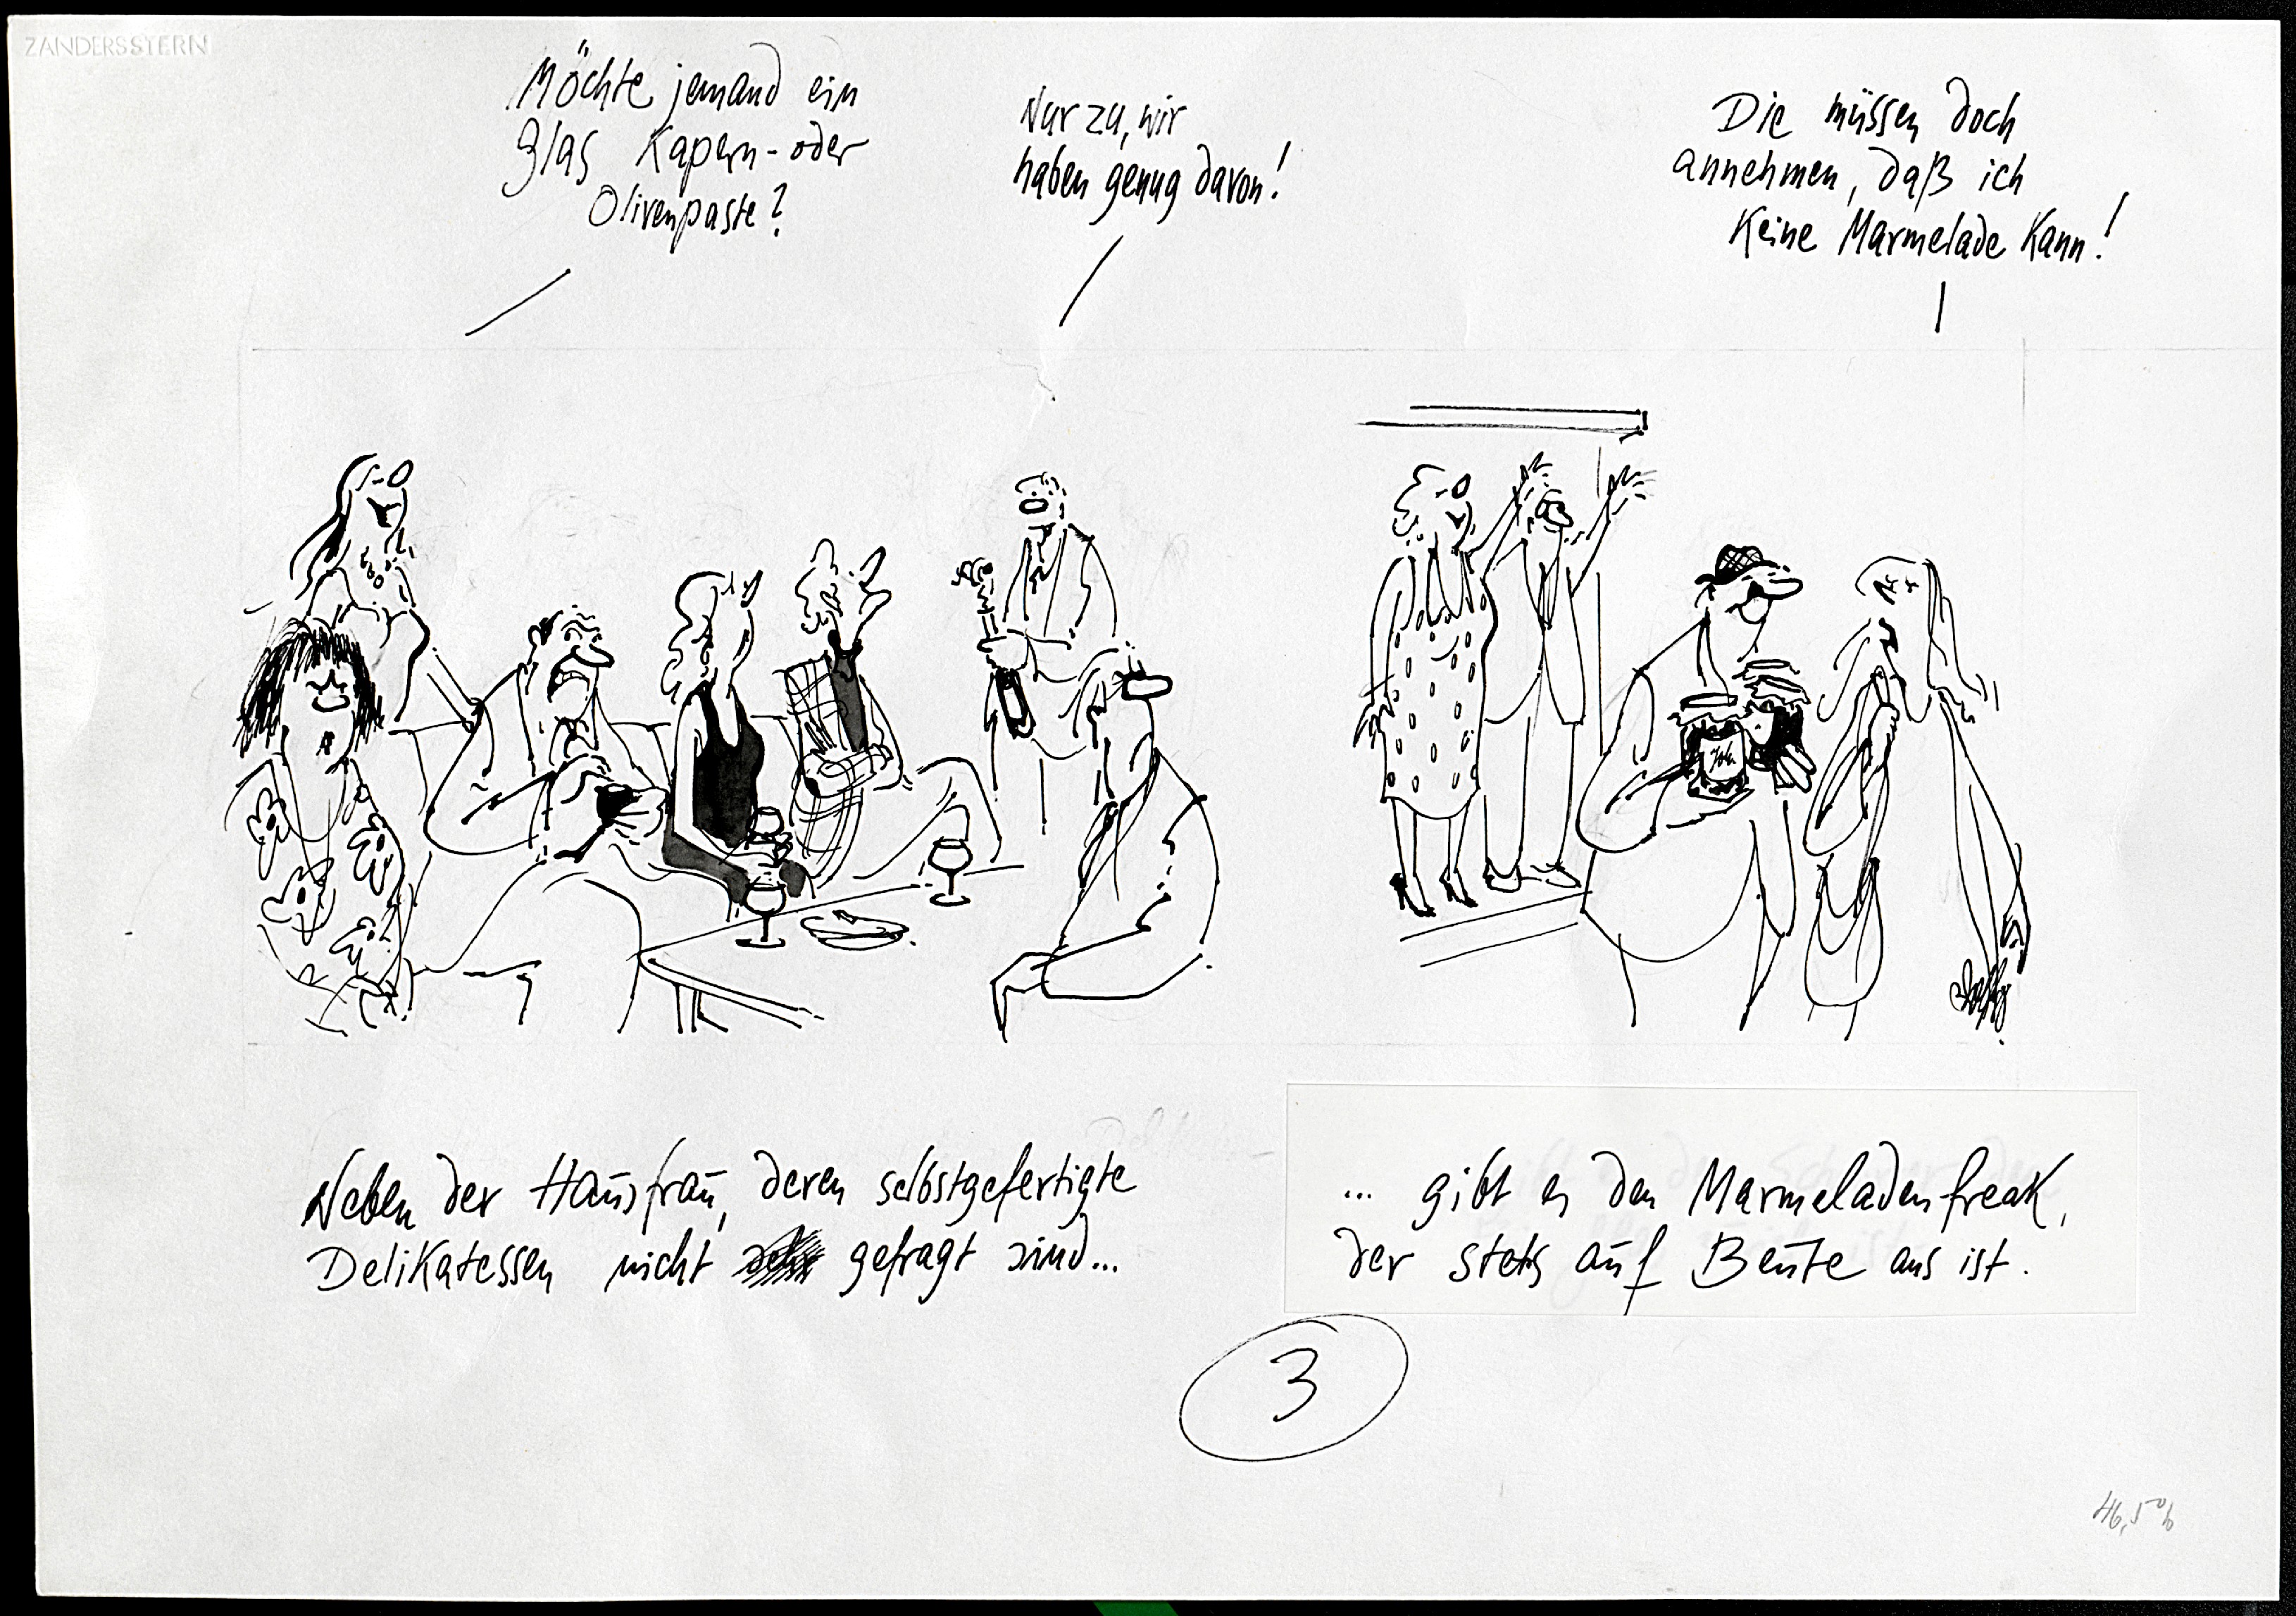 ZANDERS STERN
Möchte jemand ein
Glas Kapern- oder
Olivenpaste?
Nur zu, wir
haben genug davon!
Die müssen doch
annehmen, daß ich
keine Marmelade kann!
Neben der Hausfrau, deren selbstgefertigte
Delikatessen nicht gefragt sind...
... gibt es den Marmeladenfreak,
der stets auf Beute aus ist.
3
46,5%